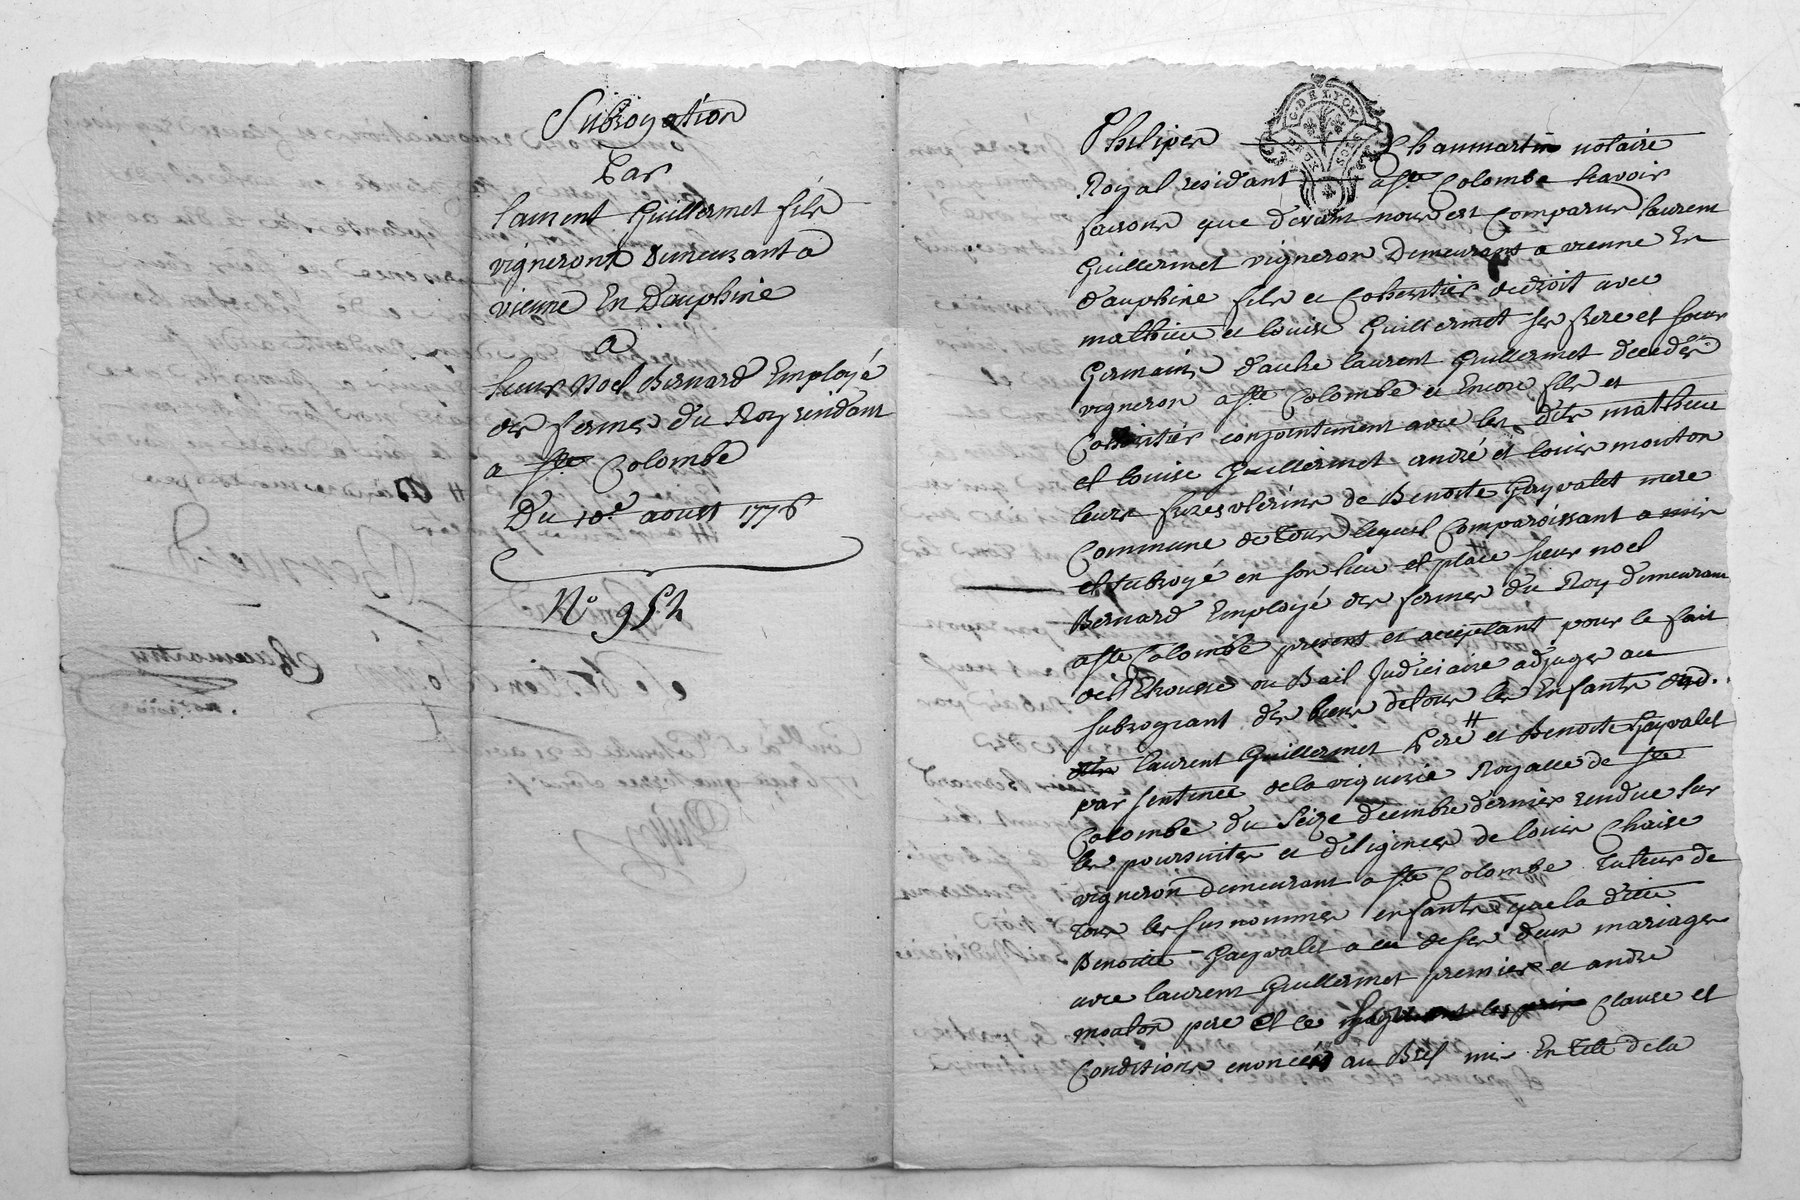 Subrogation
Par
laurent Guillermet fils
vigneront demeurant a
vienne En Dauphine
a
sieur Noel Bernard Employé
des fermes du Roy residant
a Ste Colombe
Du 10e aoust 1776
N° 952
Philipes Chaumartin notaire
Royal residant a Ste Colombe scavoir
faisons que devant nous est comparus laurent
Guillermet vigneron Demeurant a vienne En
dauphine fils et Coheritier de droit avec
mathieu et louise Guillermet ses frere et soeur
Germains d'autre laurent Guillermet decedes
vigneron a Ste Colombe et Encore fils et
Coheritier conjointement avec les dits mathieu
et louise Guillermet andré et louis mouton
leurs freres uterins de Benoite Gayvalet mere
Commune de tous lequel Comparoissant a mis
et subrogé en son lieu et place sieur noel
Bernard Employé des fermes du Roy demeurant
a Ste Colombe present et acceptant pour le fait
de ou Bail Judiciaire adjuger au
subrogeant des biens de tous les Enfants dud.
laurent Guillermet Pere # et Benoite Gayvalet
par sentence de la viguerie Royalle de Ste
Colombe du Seize decembre dernier rendue sur
les poursuites et diligences de louis Chaise
vigneron demeurant a Ste Colombe tuteur de
tous les susnommes enfants que la dite
Benoite Gayvalet a eu de ses deux mariages
avec laurent Guillermet premier et andré
mouton pere et ce clause et
Conditions enoncés au Bref mis En tete de la
C. DE LYON